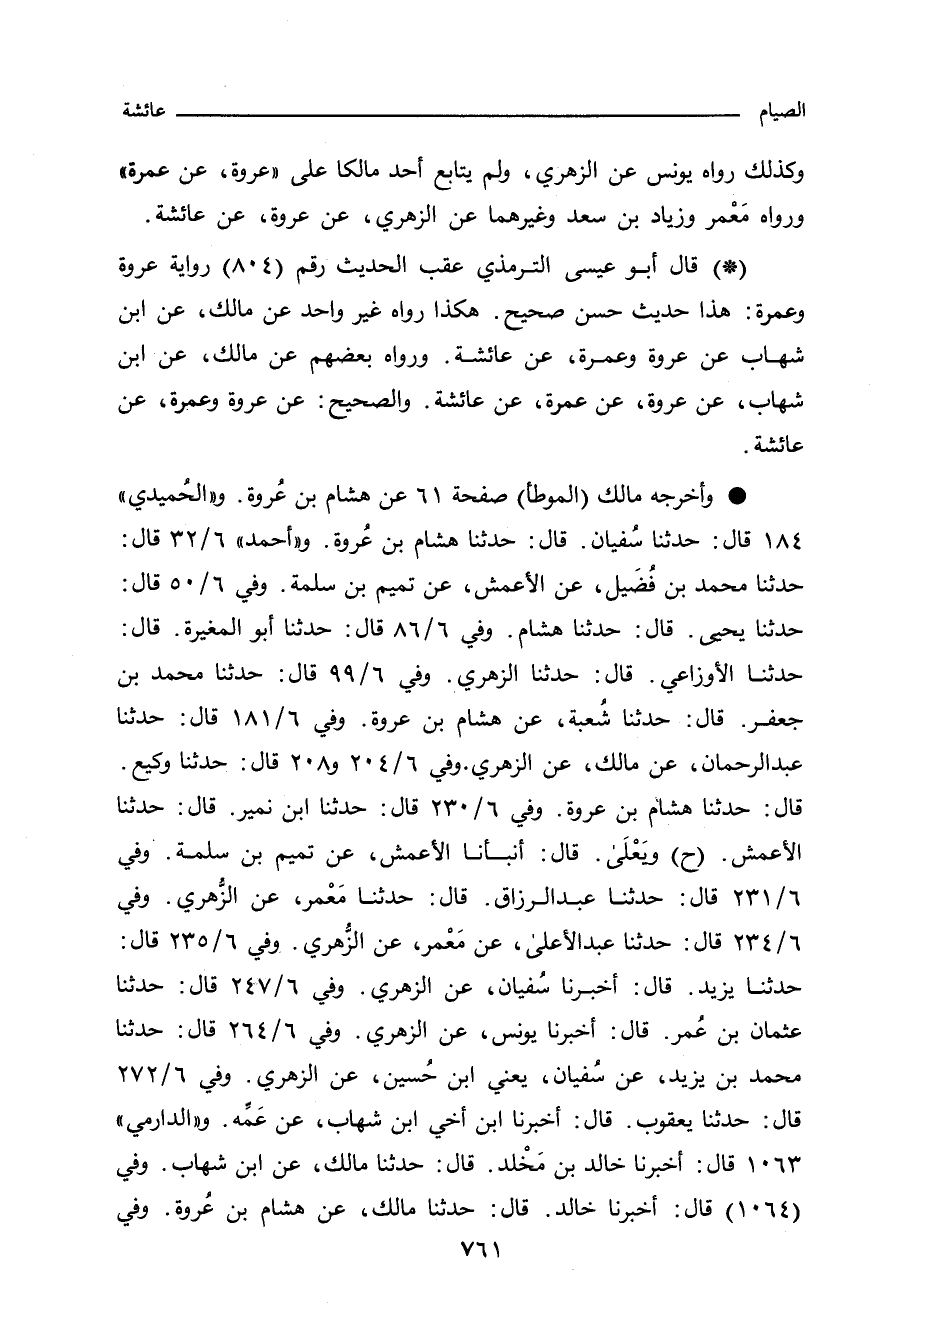 الصيام ــــــــــ عائشة
وكذلك رواه يونس عن الزهري، ولم يتابع أحد مالكا على «عروة، عن عمرة»
ورواه مَعْمر وزياد بن سعد وغيرهما عن الزهري، عن عروة، عن عائشة.
(*) قال أبو عيسى الترمذي عقب الحديث رقم (٨٠٤) رواية عروة
وعمرة: هذا حديث حسن صحيح. هكذا رواه غير واحد عن مالك، عن ابن
شهاب عن عروة وعمرة، عن عائشة. ورواه بعضهم عن مالك، عن ابن
شهاب، عن عروة، عن عمرة، عن عائشة. والصحيح: عن عروة وعمرة، عن
عائشة.
● وأخرجه مالك (الموطأ) صفحة ٦١ عن هشام بن عُروة. و«الحُميدي»
١٨٤ قال: حدثنا سُفيان. قال: حدثنا هشام بن عُروة. و«أحمد» ٣٢/٦ قال:
حدثنا محمد بن فُضَيل، عن الأعمش، عن تميم بن سلمة. وفي ٥٠/٦ قال:
حدثنا يحيى. قال: حدثنا هشام. وفي ٨٦/٦ قال: حدثنا أبو المغيرة. قال:
حدثنا الأوزاعي. قال: حدثنا الزهري. وفي ٩٩/٦ قال: حدثنا محمد بن
جعفر. قال: حدثنا شُعبة، عن هشام بن عروة. وفي ١٨١/٦ قال: حدثنا
عبدالرحمان، عن مالك، عن الزهري.وفي ٢٠٤/٦ و٢٠٨ قال: حدثنا وكيع.
قال: حدثنا هشام بن عروة. وفي ٢٣٠/٦ قال: حدثنا ابن نمير. قال: حدثنا
الأعمش. (ح) ويَعْلَىٰ. قال: أنبأنا الأعمش، عن تميم بن سلمة. وفي
٢٣١/٦ قال: حدثنا عبدالرزاق. قال: حدثنا مَعْمر، عن الزُّهري. وفي
٢٣٤/٦ قال: حدثنا عبدالأعلىٰ، عن مَعْمر، عن الزُّهري. وفي ٢٣٥/٦ قال:
حدثنا يزيد. قال: أخبرنا سُفيان، عن الزهري. وفي ٢٤٧/٦ قال: حدثنا
عثمان بن عُمر. قال: أخبرنا يونس، عن الزهري. وفي ٢٦٤/٦ قال: حدثنا
محمد بن يزيد، عن سُفيان، يعني ابن حُسين، عن الزهري. وفي ٢٧٢/٦
قال: حدثنا يعقوب. قال: أخبرنا ابن أخي ابن شهاب، عن عَمِّه. و«الدارمي»
١٠٦٣ قال: أخبرنا خالد بن مَخْلد. قال: حدثنا مالك، عن ابن شهاب. وفي
(١٠٦٤) قال: أخبرنا خالد. قال: حدثنا مالك، عن هشام بن عُروة. وفي
٧٦١